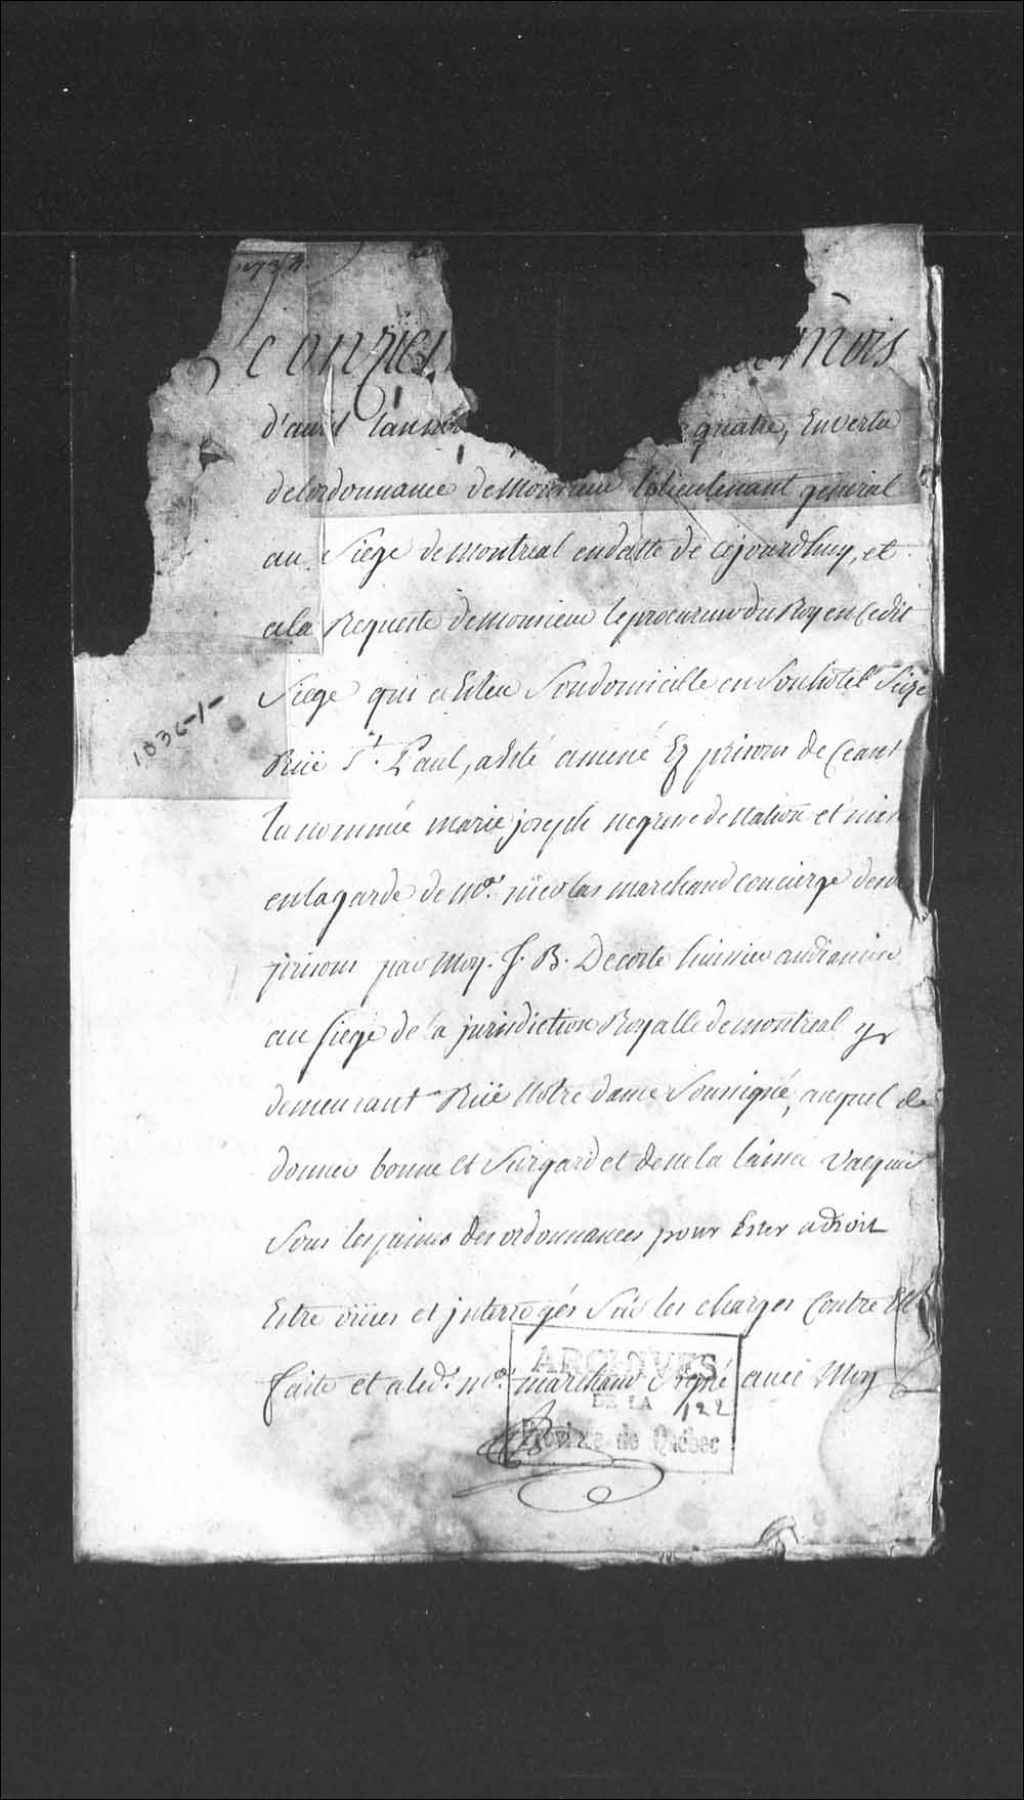 1734
onziem mois
d'avril lannee quatre, En vertu
delordonnance de Monsieur le lieutenant general
au Siege de montreal en datte de cejourdhuy, et
a la Requeste de Monsieur le procureur du Roy en Cedit
Siege qui a Esleu Son domicille en Son hotel Size
Rüe St. Paul, a Esté amené Ez prisons de Ceans
la nommée marie joseph negresse de Nation et mis
en la garde de Me. nicolas marchand concierge desd
prisons par Moy. J. B. Decoste huissier audiancier
au siege de la jurisdiction Royalle de montreal y
demeurant Rüe Notre dame Soussigné, auquel de
donner bonne et Sur gard et de ne la laisser Vacquer
Sous les peines des ordonnances pour Ester adroit
Estre oüies et jnterrogés Sur les charges Contre Elle
faite et a led. Me. marchand Signé avec Moy
1036-1-
ARCHIVES
DE LA
122
Province de Québec